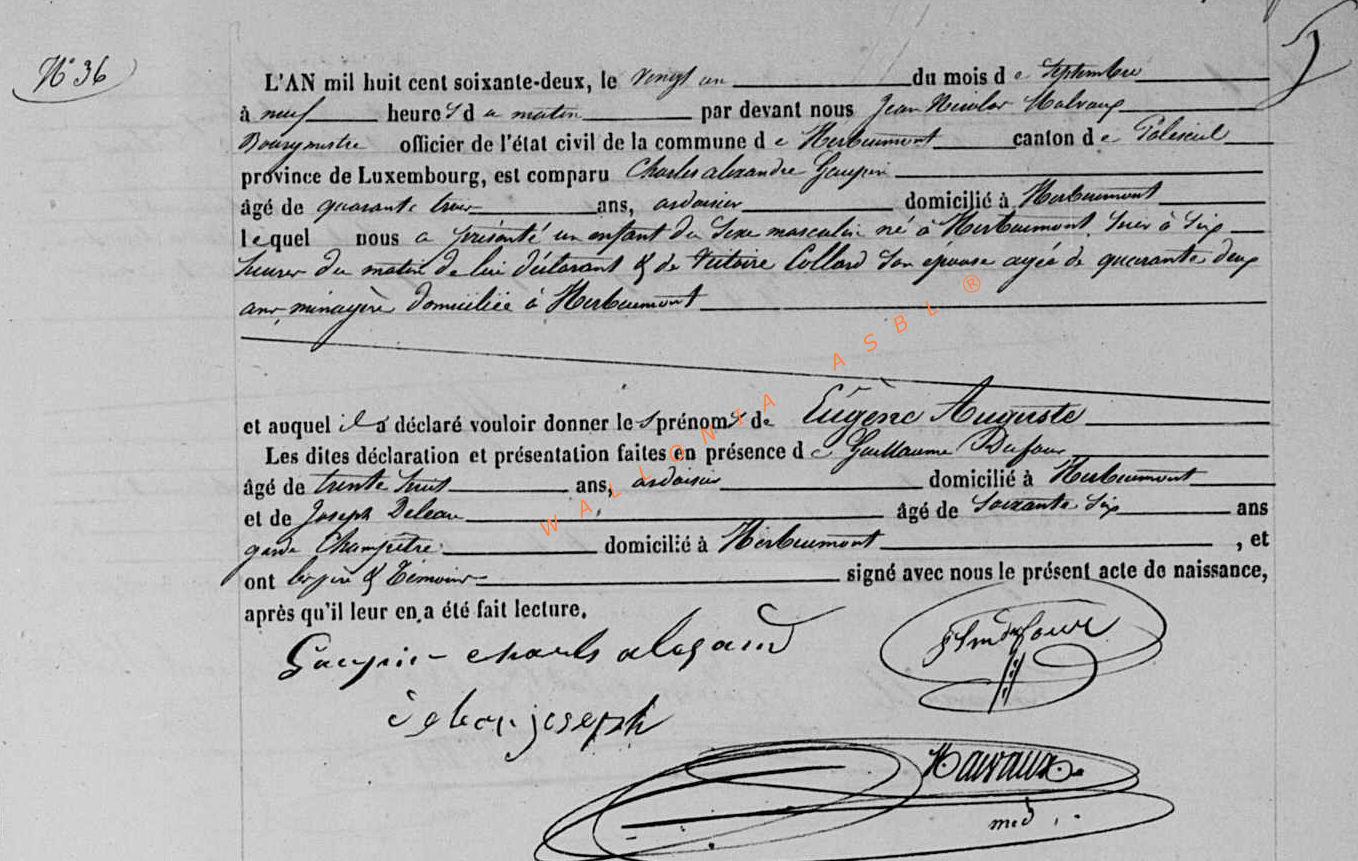 N° 36
L'AN mil huit cent soixante-deux, le vingt un du mois de Septembre
à neuf heures du matin par devant nous Jean Nicolas Malvaux
Bourgmestre officier de l'état civil de la commune de Herbeumont canton de Paliseul
province de Luxembourg, est comparu Charles alexandre Gaupin
âgé de quarante trois ans, ardoisier domicilié à Herbeumont
lequel nous a présenté un enfant du sexe masculin né à Herbeumont, hier à six
heures du matin de lui déclarant & de Victoire Collard son épouse agée de quarante deux
ans, ménagère domiciliée à Herbeumont
et auquel il a déclaré vouloir donner les prénoms de Eugène Auguste
Les dites déclaration et présentation faites en présence de Guillaume Dufour
âgé de trente huit ans, ardoisier domicilié à Herbeumont
et de Joseph Deleau âgé de Soixante six ans
garde Champêtre domicilié à Herbeumont, et
ont les père & Témoins signé avec nous le présent acte de naissance,
après qu'il leur en a été fait lecture.
Gaupin charls
joseph
Malvaux
WALLONIA ASBL ®